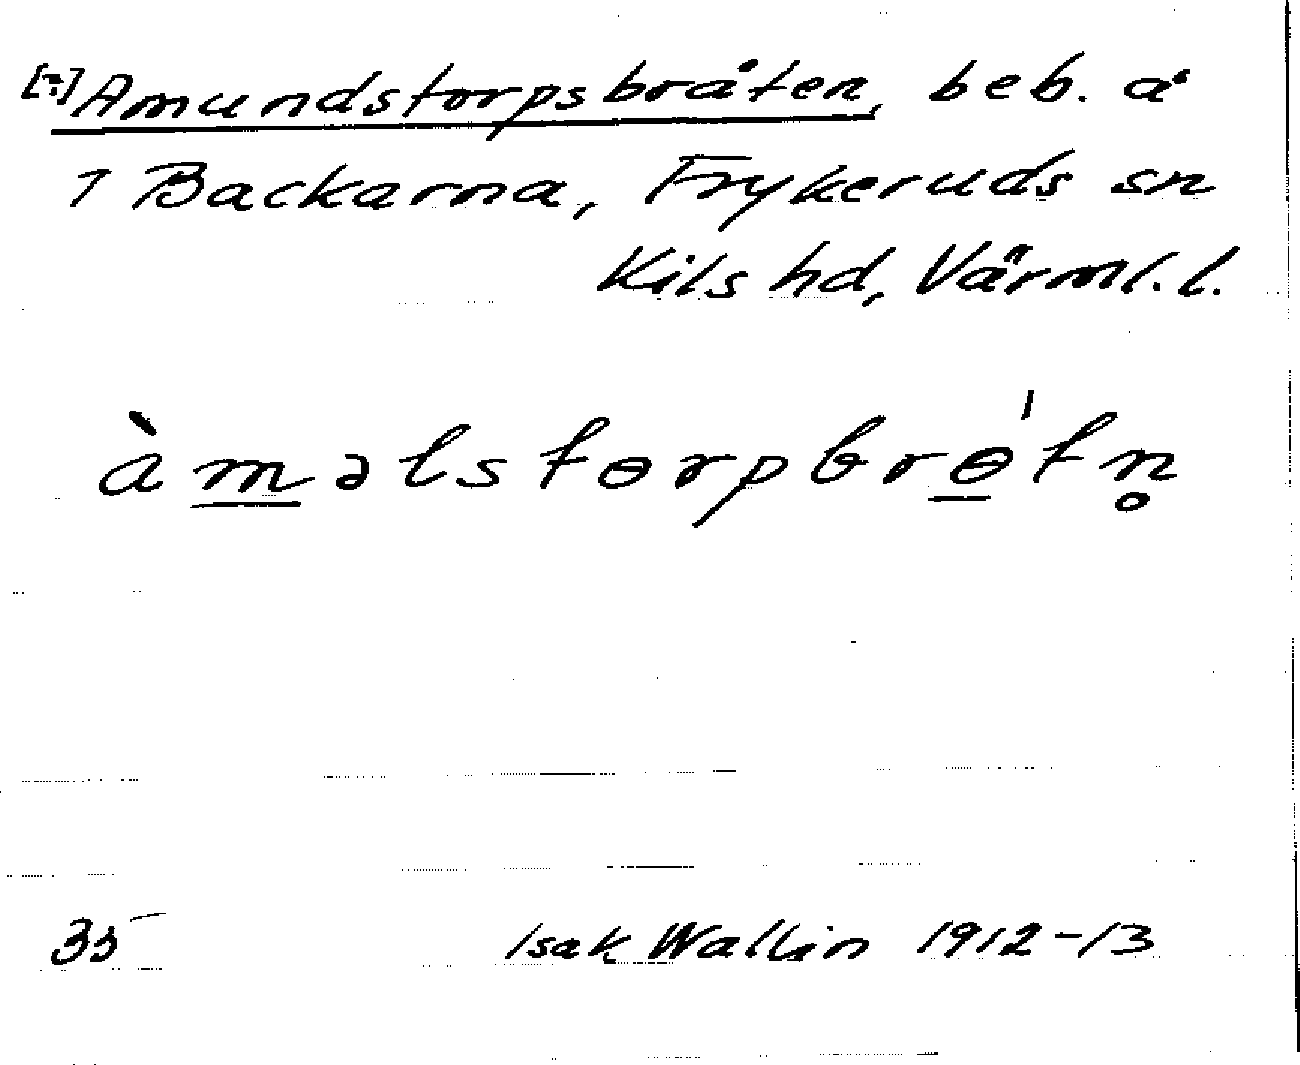 [?] Amundstorpsbråten, beb. å
1 Backarna, Frykeruds sn
Kils hd, Värml. l.
àməlstɵrpbrɵ́tn̥
35
Isak Wallin 1912-13